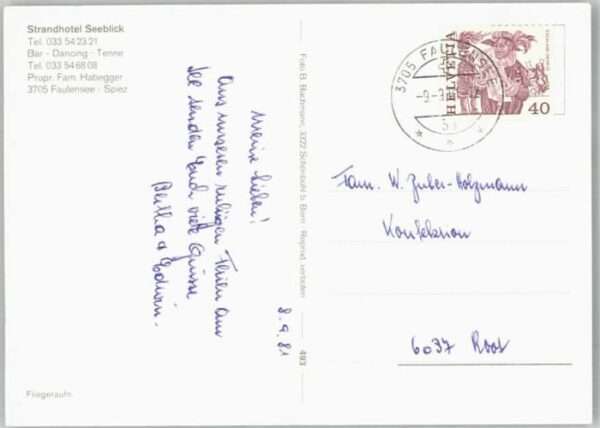 Strandhotel Seeblick
Tel. 033 54 23 21
Bar - Dancing - Tenne
Tel. 033 54 68 08
Propr. Fam. Habegger
3705 Faulensee - Spiez
Meine Lieben!
Aus unseren ruhigen Ferien am
See senden Euch viele Grüsse
Bertha & Edwin.
8.9.81
Foto B. Bachmann, 3322 Schönbühl b. Bern Reprod. verboten
493
3705 FAULENSEE
-9-
HELVETIA
40
Fam. W. Zuber-Holzmann
Konfektion
6037 Root
Fliegeraufn.